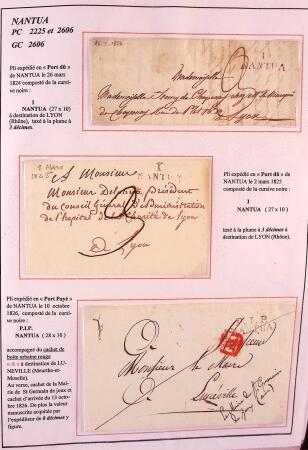 NANTUA
PC 2225 et 2606
GC 2606
Pli expédié en « Port dû »
de NANTUA le 26 mars
1824 composté de la cursi-
ve noire :
1
NANTUA (27 x 10)
à destination de LYON
(Rhône), taxé à la plume à
3 décimes.
1
NANTUA
Mademoiselle
Lyon
9 Mars
1825
1
NANTUA
A Monsieur
Monsieur Delonge, président
du Conseil Général d'administration
de l'hopital de la Charité de Lyon
à Lyon
Pli expédié en « Port dû » de
NANTUA le 2 mars 1825
composté de la cursive noire :
1
NANTUA (27 x 10)
taxé à la plume à 3 décimes à
destination de LYON (Rhône).
Pli expédié en « Port Payé »
de NANTUA le 10 octobre
1826, composté de la cursive
noire :
P.1.P.
NANTUA (28 x 10)
accompagné du cachet de
boite urbaine rouge
« A » à destination de LU-
NEVILLE (Meurthe-et-
Moselle).
Au verso, cachet de la Mairie
de St Germain de joux et
cachet d'arrivée du 13 octo-
bre 1826. De plus la valeur
manuscrite acquitée par
l'expéditeur de 8 décimes y
figure.
P.1.P.
A
Monsieur le Maire
Luneville